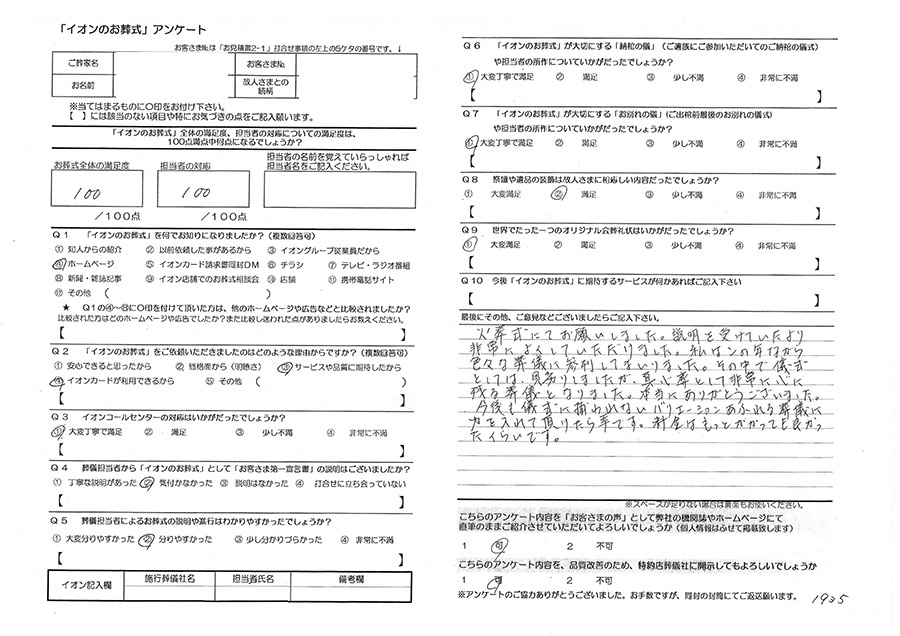 「イオンのお葬式」アンケート
お客さま№は「お見積書2-1」打合せ事項の左上の5ケタの番号です。↓
ご葬家名
お客さま№
お名前
故人さまとの続柄
※当てはまるものに〇印をお付け下さい。
【 】には該当のない項目や特にお気づきの点をご記入願います。
「イオンのお葬式」全体の満足度、担当者の対応についての満足度は、
100点満点中何点になるでしょうか？
お葬式全体の満足度
担当者の対応
担当者の名前を覚えていらっしゃれば
担当者名をご記入ください。
100
100
／100点
／100点
Q1 「イオンのお葬式」を何でお知りになりましたか？（複数回答可）
① 知人からの紹介 ② 以前依頼した事があるから ③ イオングループ従業員だから
④ ホームページ ⑤ イオンカード請求書同封DM ⑥ チラシ ⑦ テレビ・ラジオ番組
⑧ 新聞・雑誌記事 ⑨ イオン店舗でのお葬式相談会 ⑩ 店舗 ⑪ 携帯電話サイト
⑫ その他 （ ）
★ Q1の④～⑧に〇印を付けて頂いた方は、他のホームページや広告などと比較されましたか？
比較された方はどのホームページや広告でしたか？また比較し迷われた点がありましたらお教えください。
【 】
Q2 「イオンのお葬式」をご依頼いただきましたのはどのような理由からですか？（複数回答可）
① 安心できると思ったから ② 価格面から（明瞭さ） ③ サービスや品質に期待したから
④ イオンカードが利用できるから ⑤ その他 （ ）
【 】
Q3 イオンコールセンターの対応はいかがだったでしょうか？
① 大変丁寧で満足 ② 満足 ③ 少し不満 ④ 非常に不満
【 】
Q4 葬儀担当者から「イオンのお葬式」として「お客さま第一宣言書」の説明はございましたか？
① 丁寧な説明があった ② 気付かなかった ③ 説明はなかった ④ 打合せに立ち会っていない
【 】
Q5 葬儀担当者によるお葬式の説明や進行はわかりやすかったでしょうか？
① 大変分りやすかった ② 分りやすかった ③ 少し分かりづらかった ④ 非常に不満
【 】
イオン記入欄 施行葬儀社名 担当者氏名 備考欄
Q6 「イオンのお葬式」が大切にする「納棺の儀」（ご遺族にご参加いただいてのご納棺の儀式）
や担当者の所作についていかがだったでしょうか？
① 大変丁寧で満足 ② 満足 ③ 少し不満 ④ 非常に不満
【 】
Q7 「イオンのお葬式」が大切にする「お別れの儀」（ご出棺前最後のお別れの儀式）
や担当者の所作についていかがだったでしょうか？
① 大変丁寧で満足 ② 満足 ③ 少し不満 ④ 非常に不満
【 】
Q8 祭壇や遺品の装飾は故人さまに相応しい内容だったでしょうか？
① 大変満足 ② 満足 ③ 少し不満 ④ 非常に不満
【 】
Q9 世界でたった一つのオリジナル会葬礼状はいかがだったでしょうか？
① 大変満足 ② 満足 ③ 少し不満 ④ 非常に不満
【 】
Q10 今後「イオンのお葬式」に期待するサービスが何かあればご記入下さい
【 】
最後にその他、ご意見などございましたらご記入下さい。
火葬式にてお願いしました。説明を受けていたより
非常によくしていただけました。私はこの年なから
色々な葬儀に参列してまいりました。その中で儀式
としては、見劣りしましたが、真心葬として非常に心に
残る葬儀となりました。本当にありがとうございました。
今後も儀式に捕われないバリエーションあふれる葬儀に
力を入れて頂けたら幸です。料金はもっとかかっても良かっ
たくらいです。
※スペースが足りない場合は裏面もお使いください。
こちらのアンケート内容を「お客さまの声」として弊社の機関誌やホームページにて
直筆のままご紹介させていただいてよろしいでしょうか（個人情報はふせて掲載致します）
1 可 2 不可
こちらのアンケート内容を、品質改善のため、特約店葬儀社に開示してもよろしいでしょうか
1 可 2 不可
※アンケートのご協力ありがとうございました。お手数ですが、同封の封筒にてご返送願います。
1935